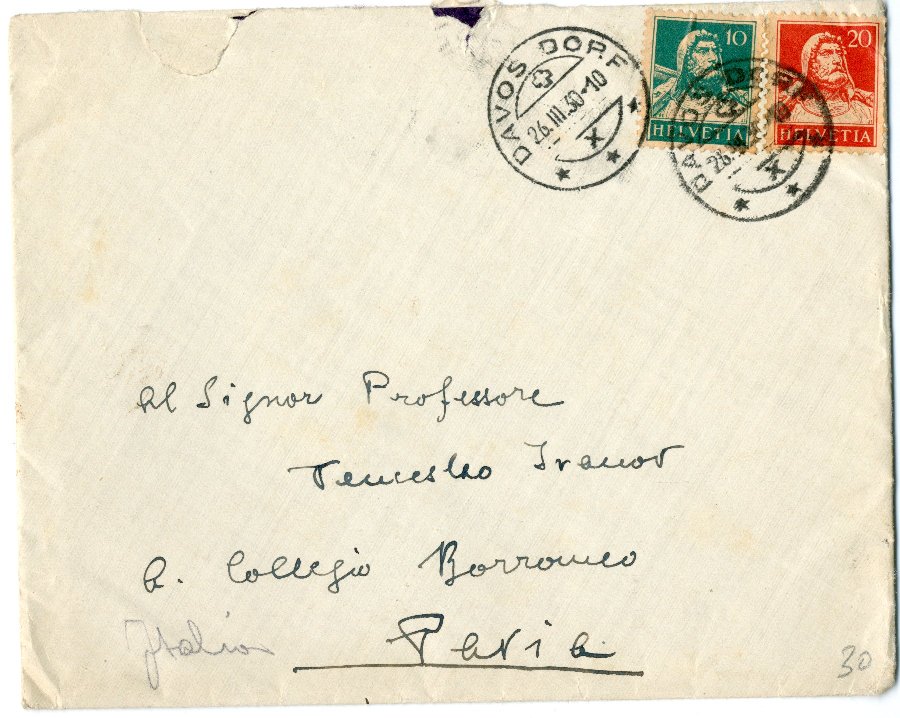 DAVOS DORF
26.III.30-10
X
10
HELVETIA
20
HELVETIA
DORF
X
Al Signor Professore
Venceslao Ivanov
A. Collegio Borromeo
Pavia
Italia
30